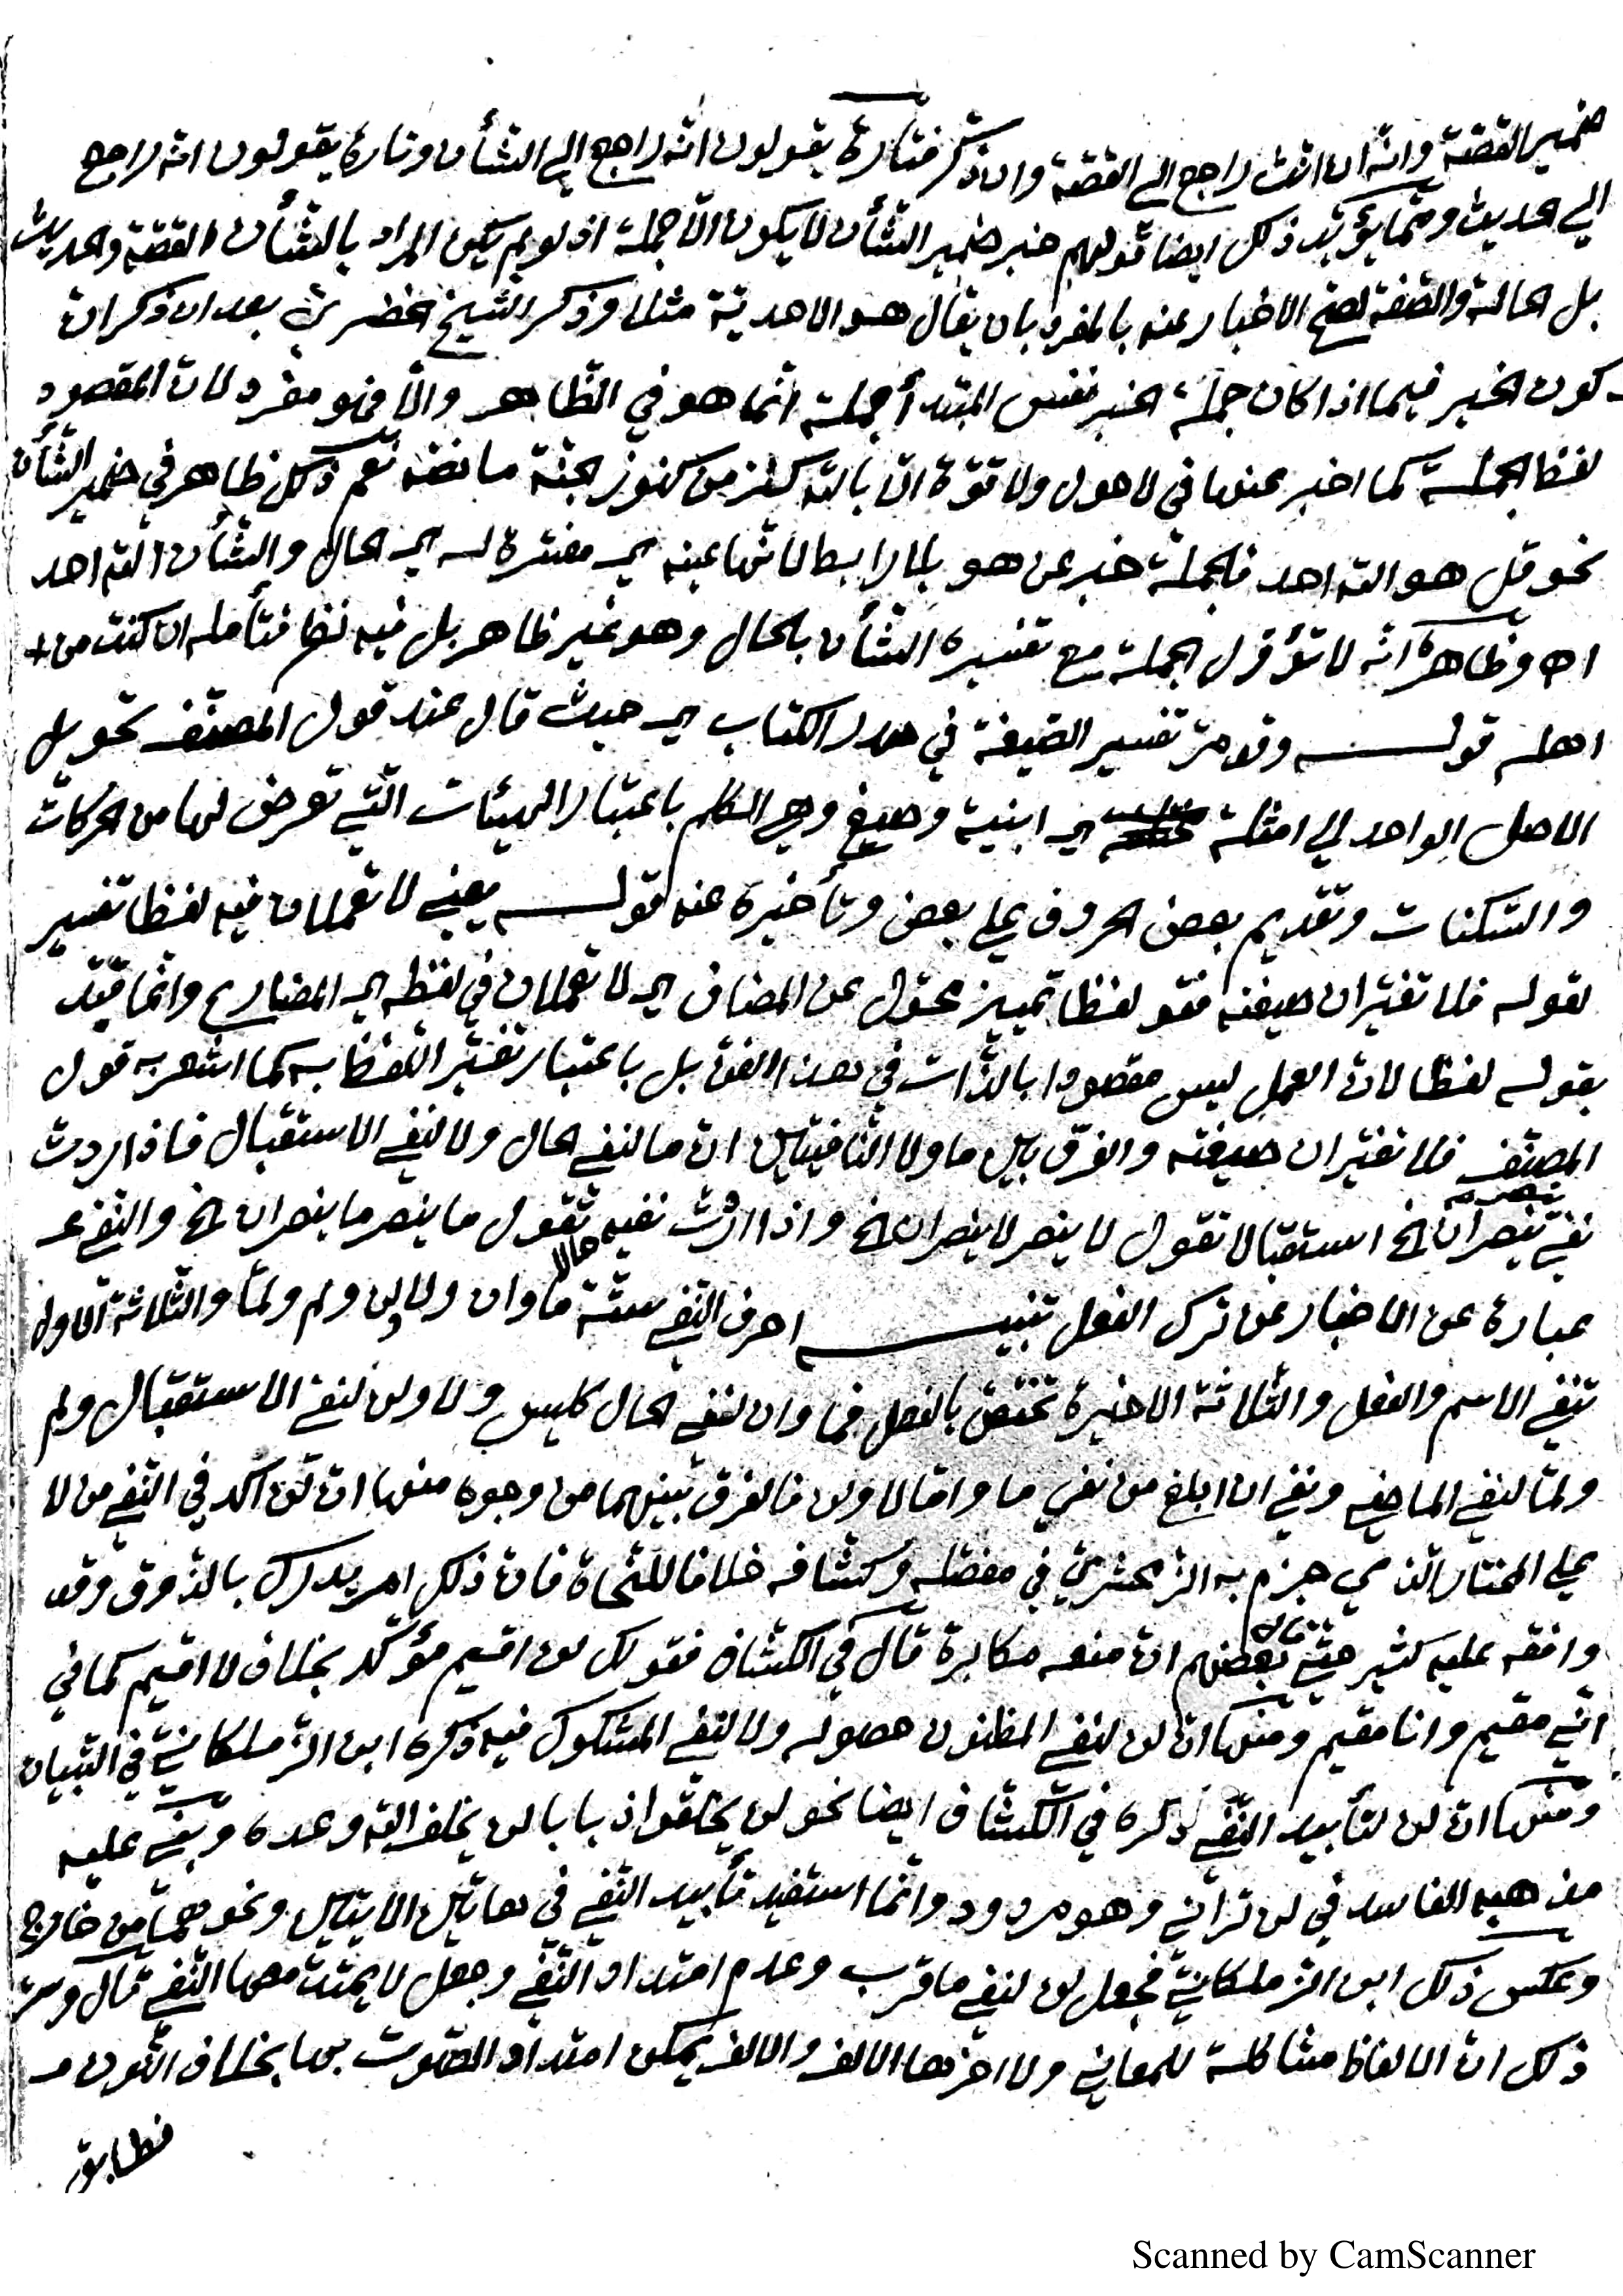 ضمير القصة وانه ان انث راجع الى القصة وان ذكر فتارة يقولون انه راجع الي الشأن وتارة يقولون انه راجع
الي الحديث ومما يؤيد ذلك ايضا قولهم خبر ضمير الشأن لا يكون الا جملة اذ لو لم يكن المراد بالشأن القصة والحديث
بل الحالة والصفة لصح الاخبار عنه بالمفرد بان يقال هو الاحدية مثلا وذكر الشيخ الخضري بعد ان ذكر ان
كون الخبر فيما اذا كان جملة الخبر نفس المبتدأ جملة انما هو في الظاهر والا فهو مفرد لان المقصود
لفظ الجملة كما اخبر عنها في لا حول ولا قوة الا بالله كنز من كنوز الجنة ما نصه نعم ذلك ظاهر في ضمير الشأن
نحو قل هو الله احد فالجملة خبر عن هو بلا رابط لانها عينه اي مفسرة له اي الحال والشأن الله احد
اه وظاهره انه لا تؤول الجملة مع تفسيره الشأن بالحال وهو غير ظاهر بل فيه نظر فتأمله ان كنت من
اهله قوله وقد مر تفسير الصيغة في صدر الكتاب اي حيث قال عند قول المصنف تحويل
الاصل الواحد الي امثلة اي ابنية وصيغ وهي الكلم باعتبار الهيئات التي تعرض لها من الحركات
والسكنات وتقديم بعض الحروف علي بعض وتأخيره عنه قوله يعني لا تعملان فيه لفظا تفسير
لقوله فلا تغيران صيغته فقو لفظا تمييز محول عن المضاف اي لا تعملان في لفظه اي المضارع وانما قيد
بقوله لفظا لان العمل ليس مقصودا بالذات في هذا الفن بل باعتبار تغير اللفظ به كما اشعر به قول
المصنف فلا تغيران صيغته والفرق بين ما ولا النافيتين ان ما لنفي الحال ولا لنفي الاستقبال فاذا اردت
نفي ينصر ينصران الخ استقبالا تقول لا ينصر لا ينصران الخ واذا اردت نفيه حالا تقول ما ينصر ما ينصران الخ والنفي
عبارة عن الاخبار عن ترك الفعل تنبيه احرف النفي ستة ما وان ولا ولن ولم ولما والثلاثة الاول
تنفي الاسم والفعل والثلاثة الاخيرة تختص بالفعل فما وان لنفي الحال كليس ولا ولن لنفي الاستقبال ولم
ولما لنفي الماضي ونفي ان ابلغ من نفي ما واما لا ولن فالفرق بينهما من وجوه منها ان لن اكد في النفي من لا
علي المختار الذي جزم به الزمخشري في مفصله وكشافه خلافا للنحاة فان ذلك امر يدرك بالذوق وقد
وافقه عليه كثير حتي قال بعضهم ان منعه مكابرة قال في الكشاف فقولك لن اقيم مؤكد بخلاف لا اقيم كما في
اني مقيم وانا مقيم ومنها ان لن لنفي المظنون حصوله ولا لنفي المشكوك فيه ذكره ابن الزملكاني في التبيان
ومنها ان لن لتأبيد النفي ذكره في الكشاف ايضا نحو لن يخلقوا ذبابا لن يخلف الله وعده وبني عليه
مذهبه الفاسد في لن تراني وهو مردود وانما استفيد تأبيد النفي في هاتين الايتين ونحوهما من خارج
وعكس ذلك ابن الزملكاني فجعل لن لنفي ما قرب وعدم امتداد النفي وجعل لا يمتد معها النفي قال وسر
ذلك ان الالفاظ مشاكلة للمعاني ولا اخرها الالف والالف يمكن امتداد الصوت بها بخلاف النون
فطابق
Scanned by CamScanner